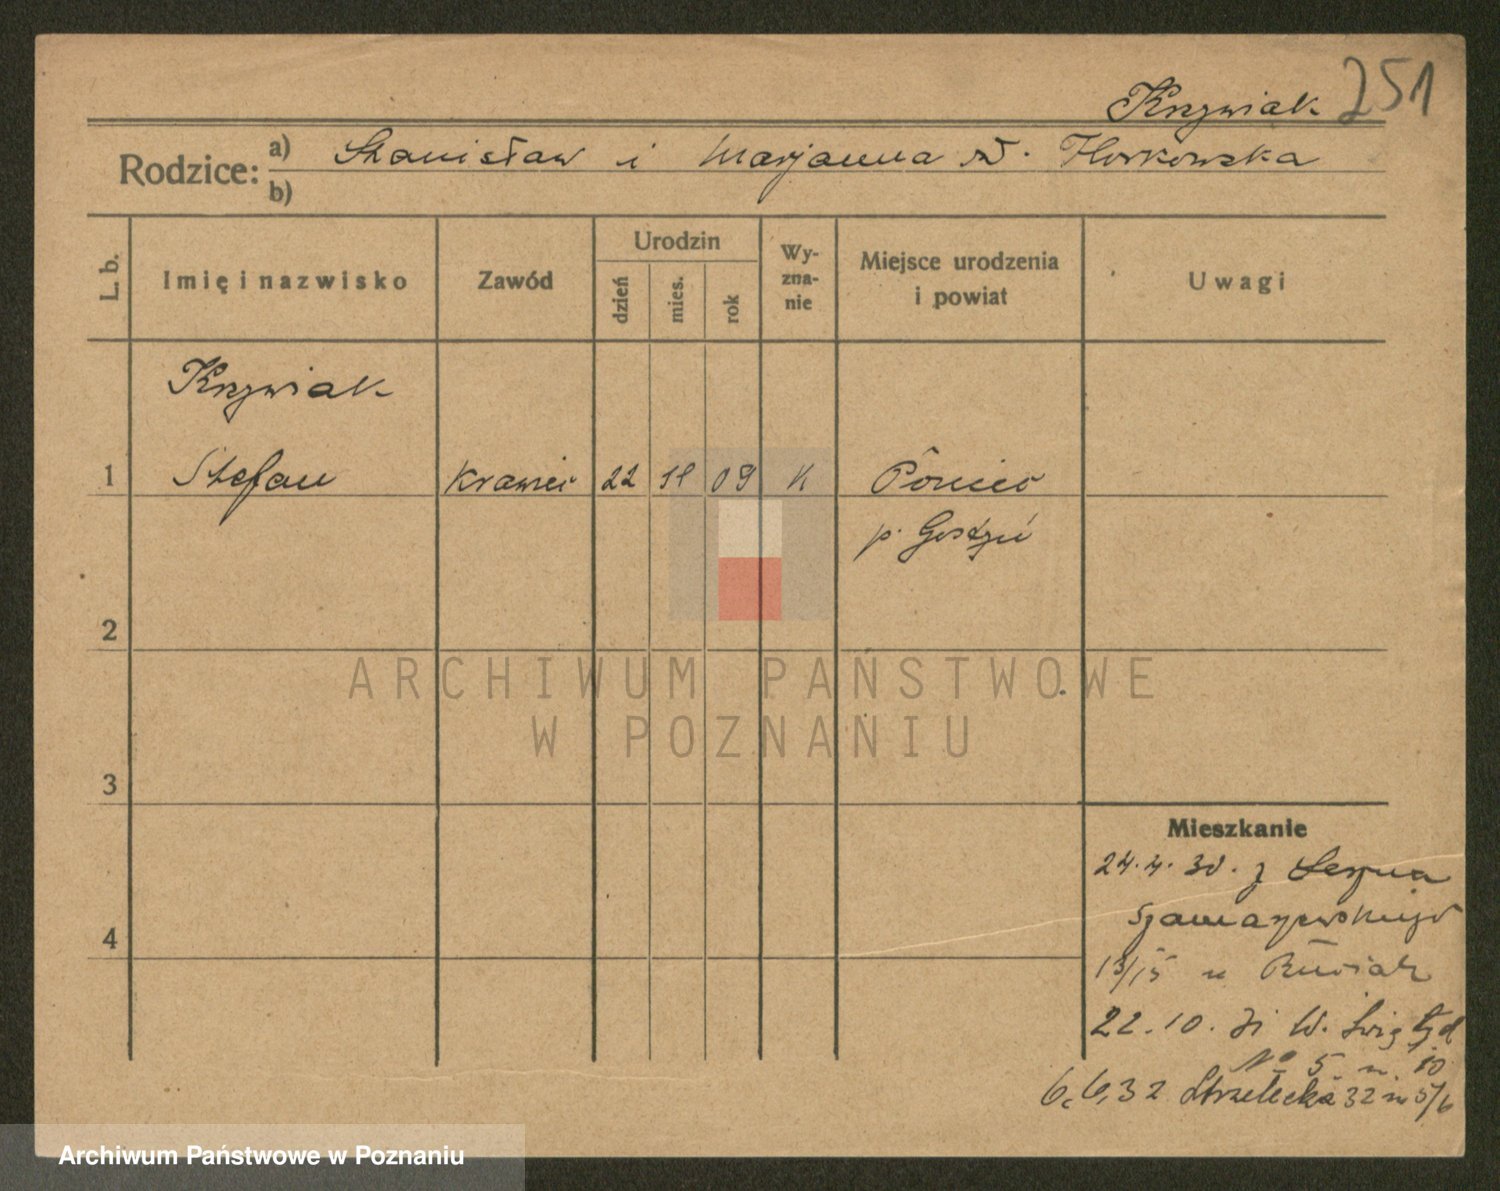 Krzywiak 251
Rodzice: a) Stanisław i Marjanna N. Florkowska
b)
L. b.
Imię i nazwisko
Zawód
Urodzin
dzień
mies.
rok
Wy-
zna-
nie
Miejsce urodzenia
i powiat
Uwagi
Krzywiak
1 Stefan krawiec 22 11 09 k Poniec
p. Gostyń
2
ARCHIWUM PAŃSTWOWE
W POZNANIU
3
Mieszkanie
24.4.30. z Leszna
Szamarzewskiego
4
13/15 u
22.10. 31 W.
No 5 10
6.6.32 Strzelecka 32 m 5/6
Archiwum Państwowe w Poznaniu